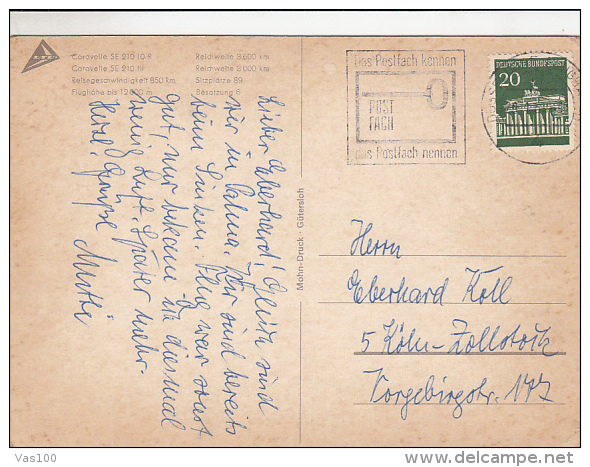 Caravelle SE 210 10 R Reichweite 3.600 km
Caravelle SE 210 III Reichweite 3.000 km
Reisegeschwindigkeit 850 km Sitzplätze 89
Flughöhe bis 12 000 m Besatzung 6
Lieber Eberhard! Gleich sind
wir in Palma. Wir sind bereits
beim Sinken. Flug war sonst
gut, nur bekam ich diesmal
wenig Luft. Später mehr.
Herzl. Grüße Mutti
Mohn-Druck · Gütersloh
Das Postfach kennen
POST
FACH
das Postfach nennen
DEUTSCHE BUNDESPOST
20
Herrn
Eberhard Koll
5 Köln-Zollstock
Vorgebirgstr.
Vas100
www.delcampe.net